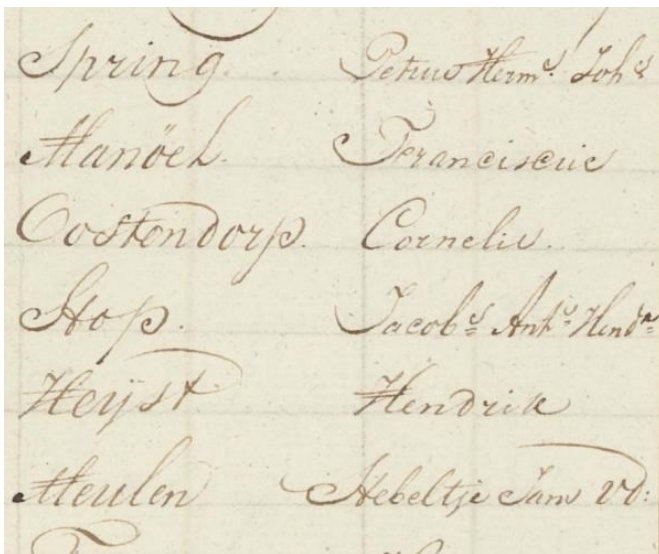 Spring. Petrus Herm.s Joh.s
Manöel. Franciscus
Oostendorp. Cornelis.
Stop. Jacob.s Ant.s Hend.k
Heyst. Hendrik
Meulen Hebeltje Jans vd: